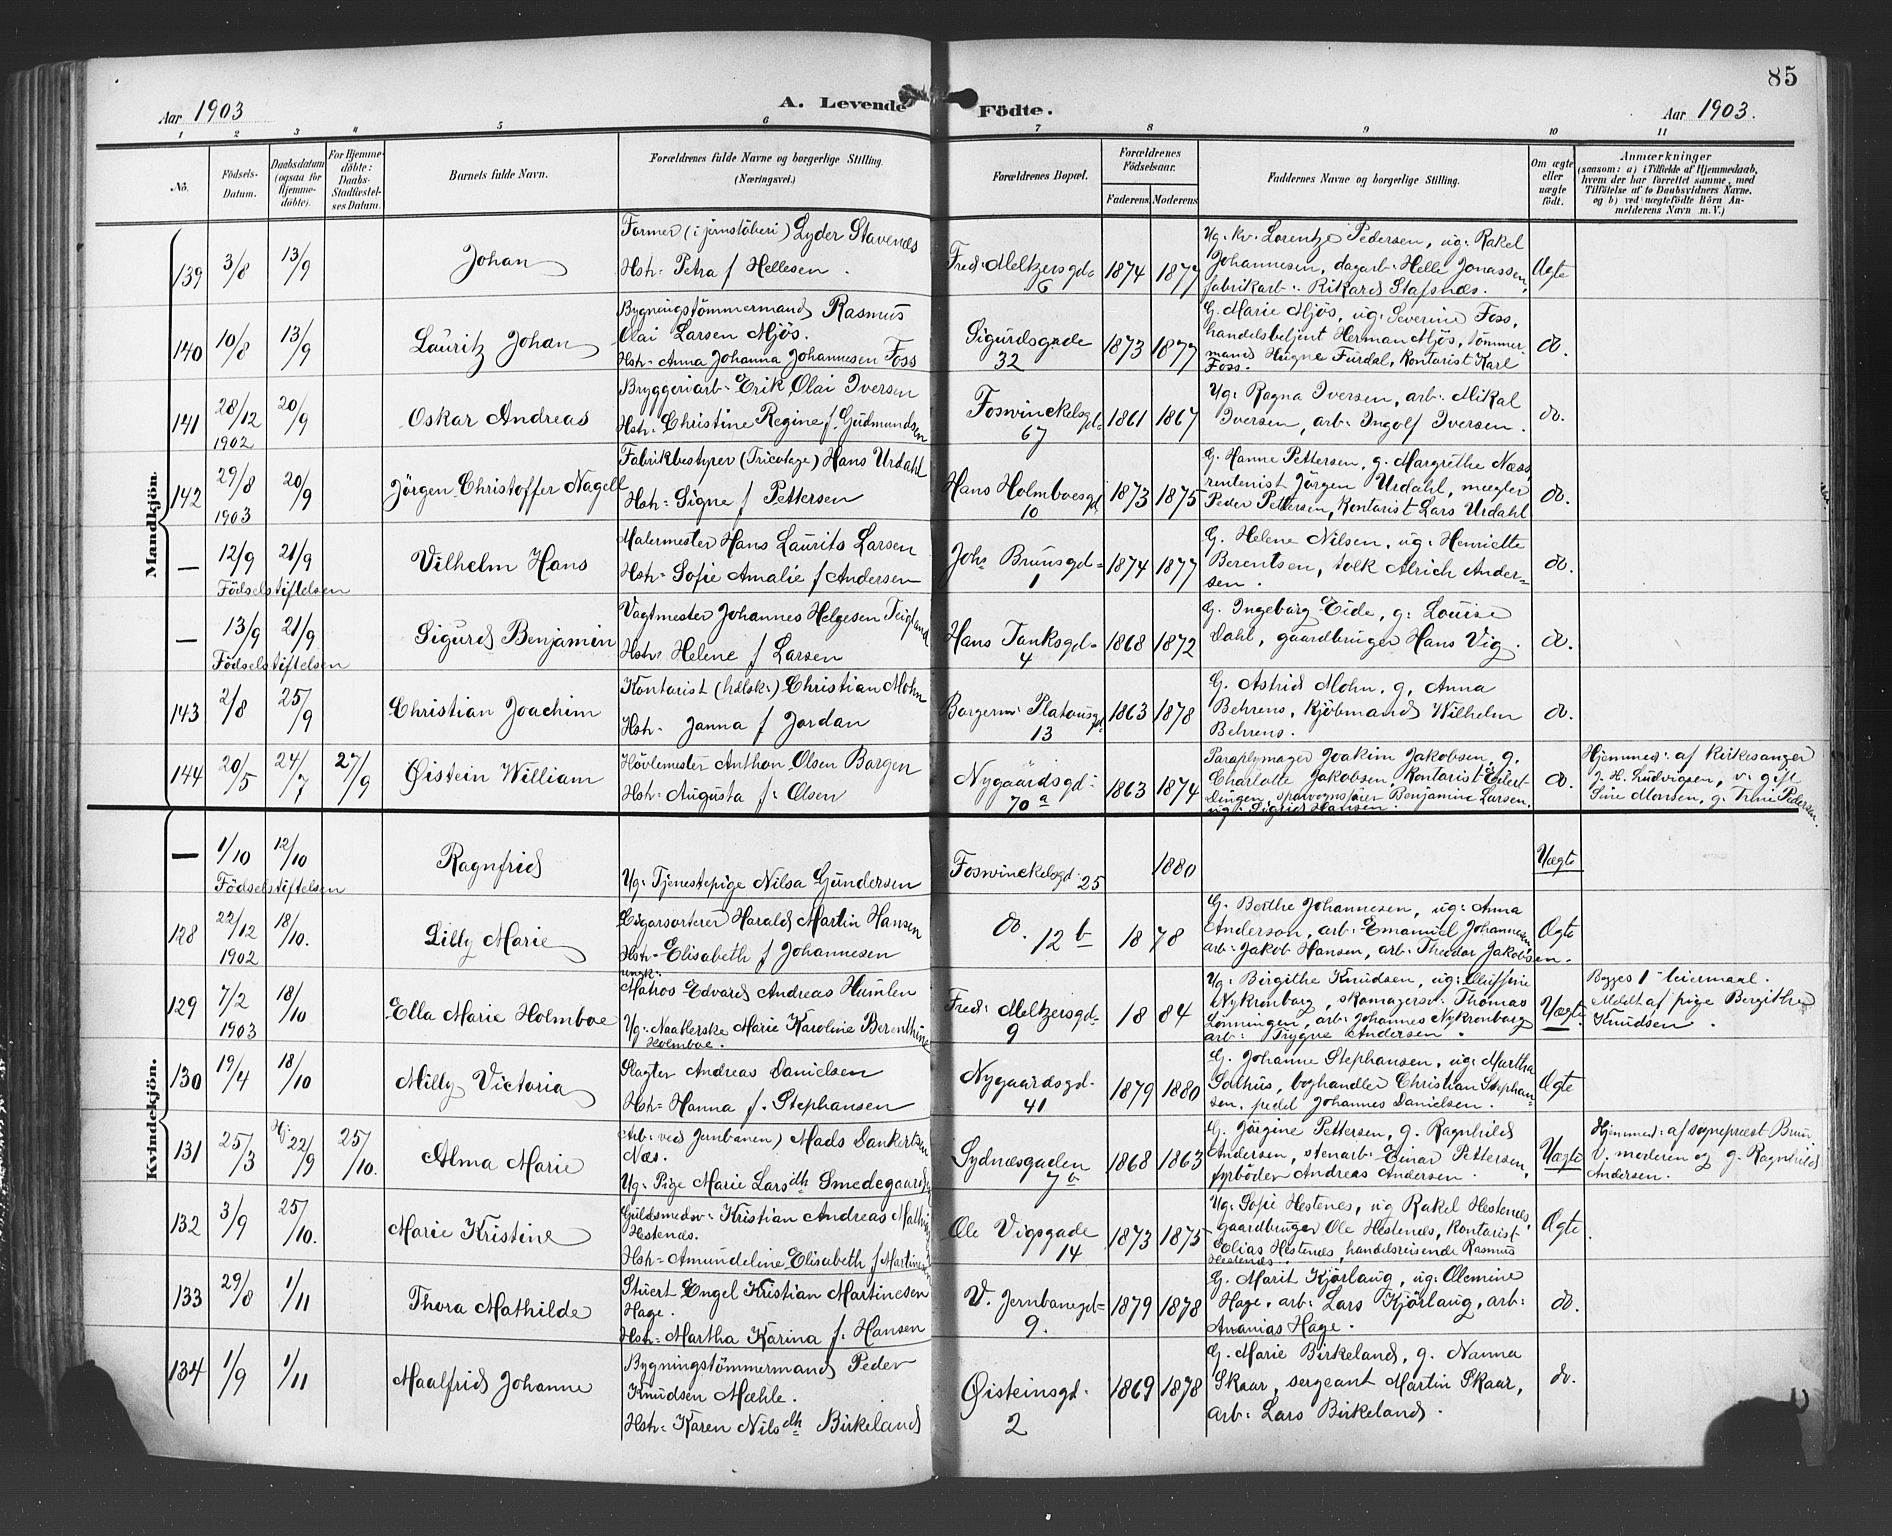 85
Aar 1903
A. Levende Födte.
Aar 1903.
1 2 3 4 5 6 7 8 9 10 11
No.
Födsels-Datum.
Daabsdatum (ogsaa for Hjemme-döbte).
For Hjemme-döbte: Daabs-Stadfæstel-ses Datum.
Barnets fulde Navn.
Forældrenes fulde Navne og borgerlige Stilling. (Næringsvei.)
Forældrenes Bopæl.
Forældrenes Födselsaar.
Faderens. Moderens.
Faddernes Navne og borgerlige Stilling.
Om ægte eller uægte födt.
Anmærkninger
(saasom: a) i Tilfælde af Hjemmedaab, hvem der har forrettet samme, med Tilföielse af to Daabsvidners Navne, og b) ved uægtefödte Börn An-melderens Navn m. V.)
Mandkjön.
139 3/8 13/9 Johan
Former (i jernstöberi) Lyder Stavenes
Hstr: Petra f Hellesen.
Fred: Meltzersgd= 6
1874 1877
Ug: kv. Lorentze Pedersen, ug: Rakel
Johannesen, dagarb: Helle Jonassen,
fabrikarb: Rikard Stafsnes.
Ægte
140 10/8 13/9 Lauritz Johan
Bygningstömmermand Rasmus
Olai Larsen Mjös.
Hstr- Anna Johanna Johannesen Foss
Sigurdsgade 32
1873 1877
G. Marie Mjös, ug: Severine Foss,
handelsbetjent Herman Mjös, tömmer-
mand Hugne Furdal, Kontorist Karl
Foss.
do.
141 28/12 1902 20/9 Oskar Andreas
Bryggeriarb- Erik Olai Iversen
Hstr: Christine Regine f. Gudmundsen
Foswinckelsgd= 67
1861 1867
Ug: Ragna Iversen, arb: Mikal
Iversen, arb: Ingolf Iversen.
do.
142 29/8 1903 20/9 Jörgen Christoffer Nagell
Fabrikbestyrer (Tricotage) Hans Urdahl
Hstr: Signe f Pettersen
Hans Holmboesgd 10
1873 1875
G. Hanne Pettersen, g. Margrethe Næss,
rentenist Jörgen Urdahl, mægler
Peder Pettersen, Kontorist Lars Urdahl
do.
— 12/9 21/9 Vilhelm Hans
Födselsstiftelsen
Malermester Hans Laurits Larsen
Hstr- Sofie Amalie f Andersen
Johs Brunsgd= 1
1874 1877
G. Helene Nilsen, ug: Henriette
Berentsen, tolk Alrich Ander-
sen.
do.
— 13/9 21/9 Sigurd Benjamin
Födselsstiftelsen
Vagtmester Johannes Helgesen Teigland
Hstr Helene f Larsen
Hans Tanksgd= 4
1868 1872
G. Ingeborg Eide, g: Louise
Dahl, gaardbruger Hans Vig.
do.
143 2/8 25/9 Christian Joachim
Kontorist (hdlsk:) Christian Mohn
Hstr- Janna f Jordan
Borgerm: Platousgd 13
1863 1878
G. Astrid Mohn, g, Anna
Behrens, Kjöbmand Wilhelm
Behrens.
do.
144 20/5 24/7 27/9 Øistein William
Hövlemester Anthon Olsen Borgen
Hstr- Augusta f. Olsen
Nygaardsgd- 70 a
1863 1874
Paraplymager Joakim Jakobsen, g.
Charlotte Jakobsen, Kontorist Eilert
Dingen, sporvognsförer Benjamin Larsen.
ug: Sigrid Hansen.
do.
Hjemmed: af Kirkesanger
J. H. Ludvigsen, v: gift
Sine Monsen, g: Trine Pedersen.
Kvindekjön.
— 1/10 12/10 Ragnfrid
Födselsstiftelsen
Ug: Tjenestepige Nilsa Gundersen
Foswinckelsgd: 25
1880
Uægte
128 22/12 1902 18/10. Lilly Marie
Cigarsorterer Harald Martin Hansen
Hstr- Elisabeth f Johannesen
do. 12 b
1878
G. Berthe Johannesen, ug: Anna
Anderson, arb: Emanuel Johannesen,
arb: Jakob Hansen, arb: Theodor Jakobsen.
Ægte
129 7/2 1903 18/10 Ella Marie Holmboe
ungk:
Matros Edvard Andreas Humlen
Ug: Naatlerske Marie Karoline Berenthine
Holmboe.
Fred: Meltzersgd- 9
1884
Ug: Birgithe Knudsen, ug: Oluffine
Nykronborg, skomagersv: Thomas
Lönningen, arb: Johannes Nykronborg
arb: Trygve Andersen.
Uægte.
Begges 1ste leiermaal.
Meldt af pige Bergithe
Knudsen.
130 19/4 18/10 Milly Victoria
Slagter Andreas Danielsen
Hstr= Hanna f. Stephansen
Nygaardsgd- 41
1879 1880
G. Johanne Stephansen, ug: Martha
Solhus, boghandler Christian Stephan-
sen, pedel Johannes Danielsen.
Ægte
131 25/3 Hj: 22/9 25/10. Alma Marie
Arb: ved Jernbanen) Mads Dankertsen
Næs.
Ug: Pige Marie Larsdtr Smedegaard
Sydnæsgaden 7 b
1868 1863
G. Jörgine Pettersen, g. Ragnhild
Andersen, stenarb. Einar Pettersen,
fyrböder Andreas Andersen.
Uægte
Hjemmed: af sognepræst Brun
V. moderen og g. Ragnhild
Andersen.
132 3/9 25/10. Marie Kristine
Guldsmedsv: Kristian Andreas Mathias
Hestenes.
Hstr- Amundeline Elisabeth f Martinesen
Ole Vigsgade 14
1873 1875
Ug: Sofie Hestenes, ug Rakel Hestenes,
gaardbruger Ole Hestenes, Kontorist
Elias Hestenes, handelsreisende Rasmus
Hestenes.
Ægte.
133 29/8 1/11 Thora Mathilde
Stuert Engel Kristian Martinesen
Hage.
Hstr- Martha Karina f. Hansen
V. Jernbanegd= 9.
1879 1878
G. Marit Kjörlaug, ug: Olemine
Hage, arb: Lars Kjörlaug, arb:
Ananias Hage.
do.
134 1/9 1/11 Maalfrid Johanne
Bygningstömmermand Peder
Knudsen Mæhle.
Hstr- Karen Nilsdtr Birkeland
Øisteinsgd- 2
1869 1878
G. Marie Birkeland, g. Nanna
Skaar, sergeant Martin Skaar,
arb: Lars Birkeland.
do.